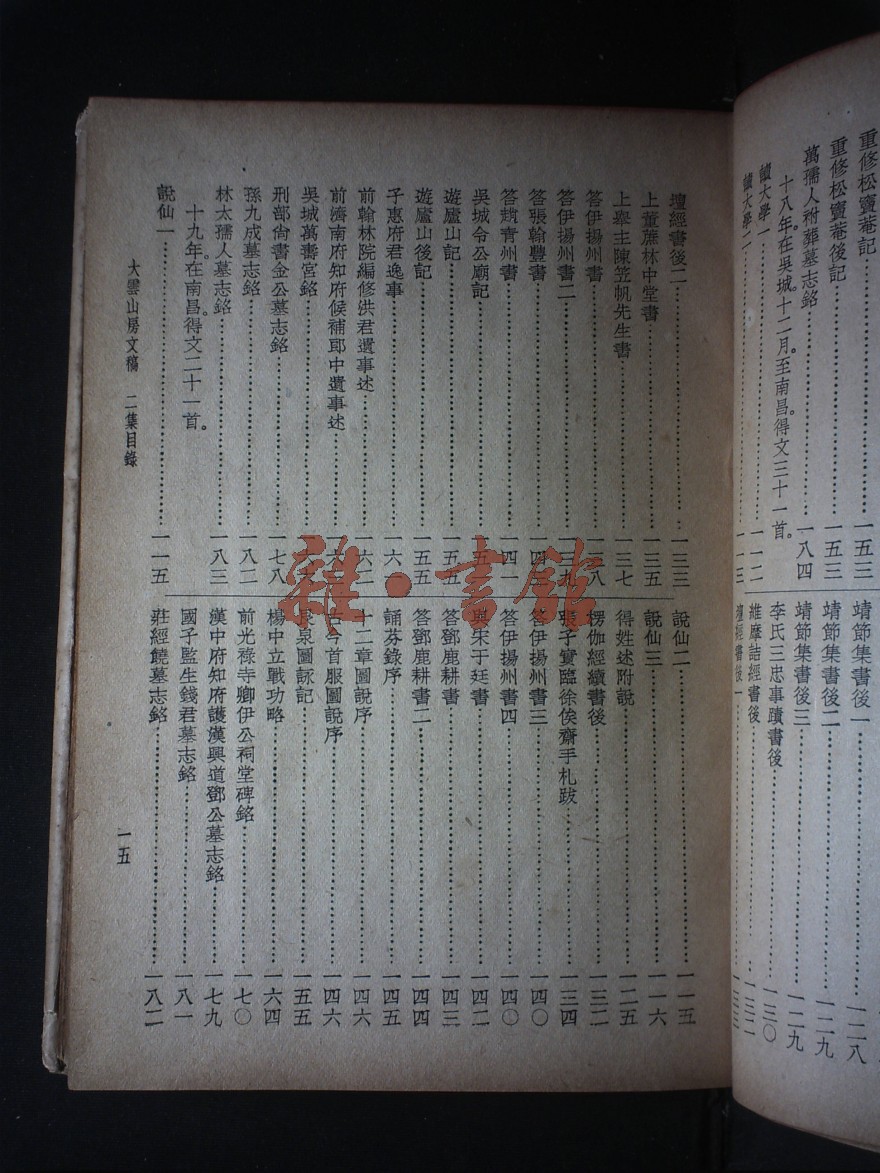 重修松竇菴記……一五三
重修松竇菴後記……一五三
萬孺人祔葬墓志銘……一八四
十八年。在吳城。十二月。至南昌。得文三十一首。
讀大學一……一一二
讀大學二
靖節集書後一……一二八
靖節集書後二……一二九
靖節集書後三……一二九
李氏三忠事蹟書後……一三〇
維摩詰經書後……一三二
壇經書後一……一三三
壇經書後二……一三三
上董蔗林中堂書……一三五
上舉主陳笠帆先生書……一三七
答伊揚州書
答伊揚州書二……一三九
答張翰豐書
答趙青州書……一四一
吳城令公廟記
遊廬山記……一五五
遊廬山後記……一五五
子惠府君逸事
前翰林院編修洪君遺事述……一六二
前濟南府知府候補郎中遺事述
吳城萬壽宮銘
刑部尙書金公墓志銘……一七八
孫九成墓志銘……一八二
林太孺人墓志銘……一八三
十九年。在南昌。得文二十一首。
說仙一……一一五
說仙二……一一五
說仙三……一一六
得姓述附說……一二五
楞伽經續書後……一三二
張子實臨徐俟齋手札跋……一三四
答伊揚州書三……一四〇
答伊揚州書四……一四〇
與宋于廷書……一四二
答鄧鹿耕書……一四三
答鄧鹿耕書二……一四四
誦芬錄序……一四五
十二章圖說序……一四六
古今首服圖說序……一四六
泉圖詠記……一五五
楊中立戰功略……一六四
前光祿寺卿伊公祠堂碑銘……一七〇
漢中府知府護漢興道鄧公墓志銘……一七九
國子監生錢君墓志銘……一八一
莊經饒墓志銘……一八二
大雲山房文稿　二集目錄
一五
雜·書館